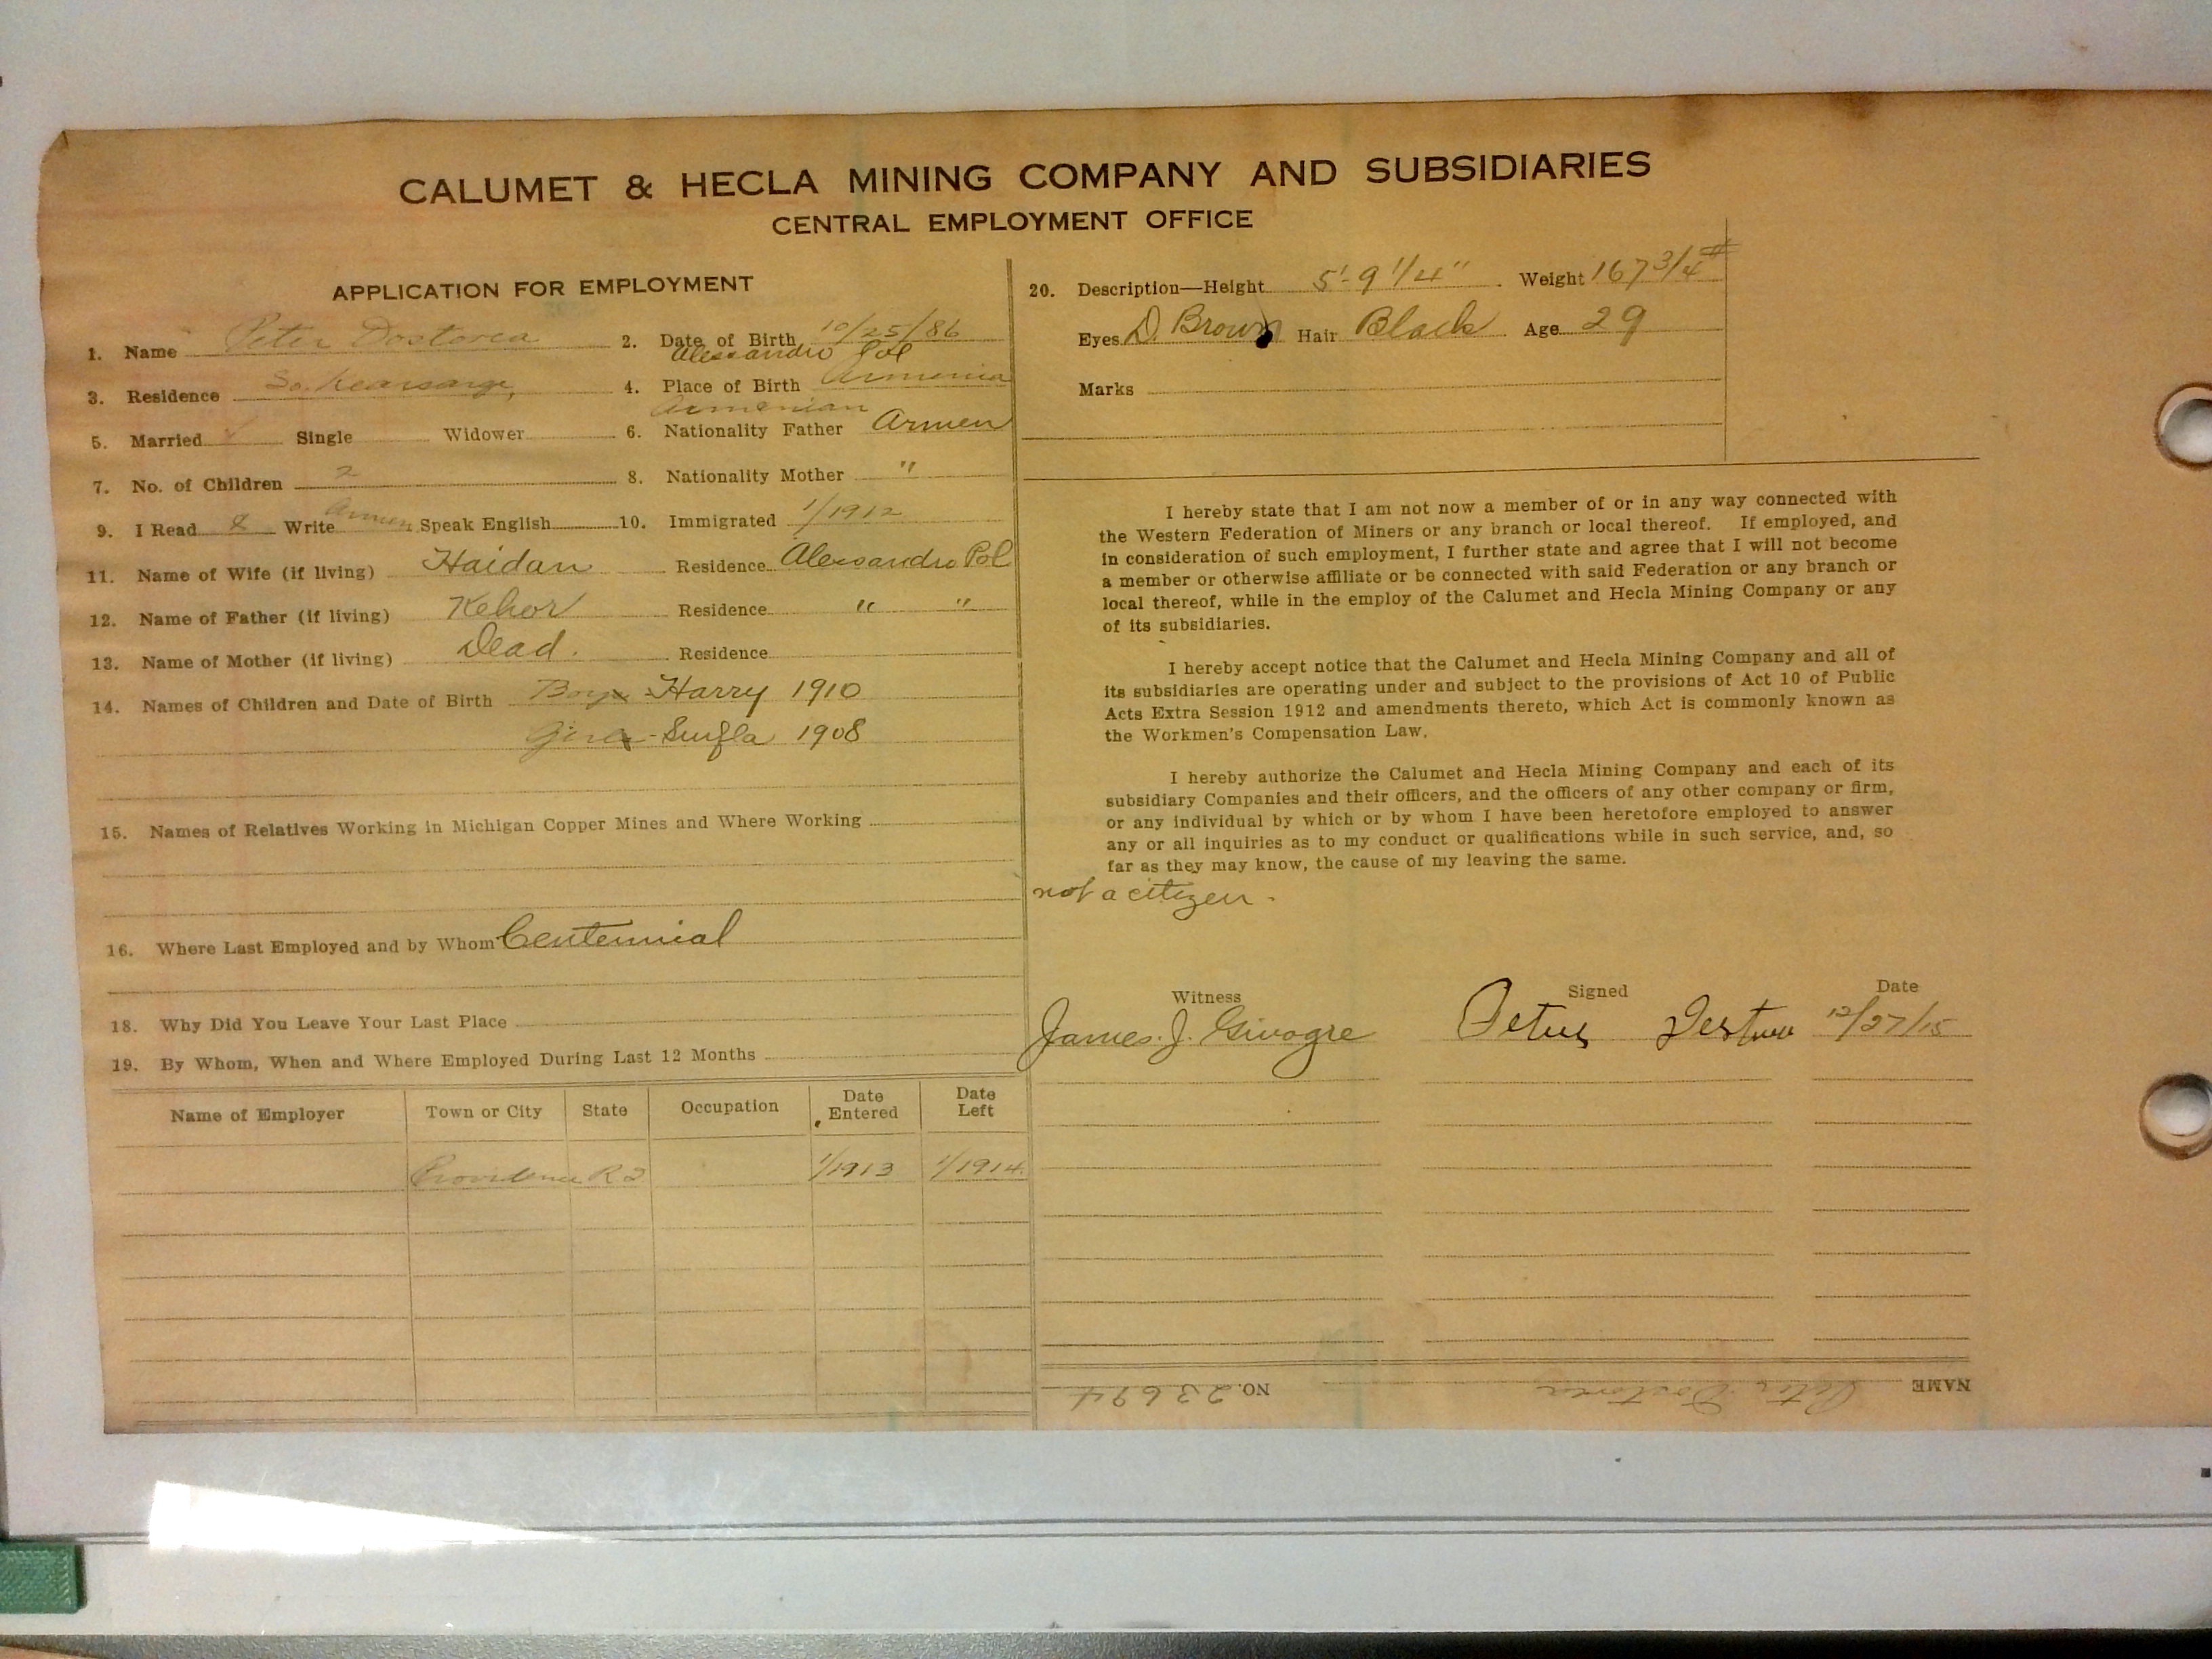 CALUMET & HECLA MINING COMPANY AND SUBSIDIARIES
CENTRAL EMPLOYMENT OFFICE
APPLICATION FOR EMPLOYMENT
1. Name Peter Dostorea 2. Date of Birth 10/25/86
Alessandro Pol
3. Residence So. Kearsarge, 4. Place of Birth Armenia
Armenian
5. Married Single Widower 6. Nationality Father Armen
7. No. of Children 2 8. Nationality Mother "
9. I Read & Write Armen Speak English 10. Immigrated 1/1912
11. Name of Wife (if living) Haidan Residence Alessandro Pol
12. Name of Father (if living) Kehor Residence " "
13. Name of Mother (if living) Dead. Residence
14. Names of Children and Date of Birth Boy Harry 1910
Girl 1908
15. Names of Relatives Working in Michigan Copper Mines and Where Working
16. Where Last Employed and by Whom Centennial
18. Why Did You Leave Your Last Place
19. By Whom, When and Where Employed During Last 12 Months
Name of Employer Town or City State Occupation Date Entered Date Left
Providence R I 1/1913 1/1914
20. Description—Height 5'-9 1/4" Weight 167 3/4 #
Eyes D. Brown Hair Black Age 29
Marks
I hereby state that I am not now a member of or in any way connected with
the Western Federation of Miners or any branch or local thereof. If employed, and
in consideration of such employment, I further state and agree that I will not become
a member or otherwise affiliate or be connected with said Federation or any branch or
local thereof, while in the employ of the Calumet and Hecla Mining Company or any
of its subsidiaries.
I hereby accept notice that the Calumet and Hecla Mining Company and all of
its subsidiaries are operating under and subject to the provisions of Act 10 of Public
Acts Extra Session 1912 and amendments thereto, which Act is commonly known as
the Workmen's Compensation Law.
I hereby authorize the Calumet and Hecla Mining Company and each of its
subsidiary Companies and their officers, and the officers of any other company or firm,
or any individual by which or by whom I have been heretofore employed to answer
any or all inquiries as to my conduct or qualifications while in such service, and, so
far as they may know, the cause of my leaving the same.
not a citizen.
Witness Signed Date
James. J. 12/27/15
NAME Peter Dostorea NO. 23694